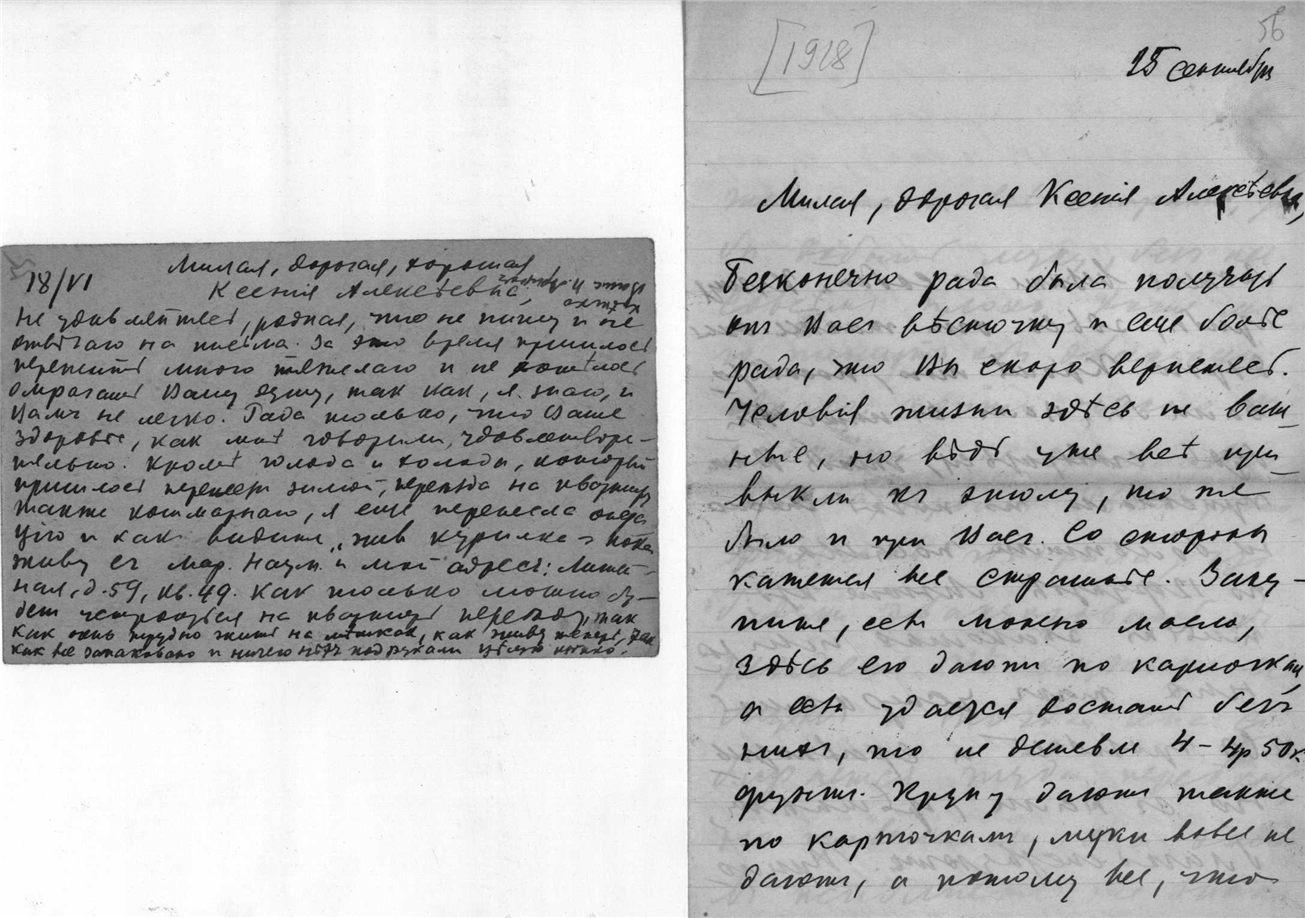 18/VI
Милая, дорогая, хорошая
Ксенія Алексѣевна,
Не удивляйтесь, родная, что не пишу и не
отвѣчаю на письма. За это время пришлось
пережить много тяжелаго и не хотѣлось
омрачать Вашу душу, такъ какъ, я знаю, и
Вамъ не легко. Рада только, что Ваше
здоровье, какъ мнѣ говорили, удовлетвори-
тельно. Кромѣ голода и холода, который
пришлось перенести зимой, переѣзда на квартиру
также кошмарнаго, я еще перенесла опера
цію и какъ видите „живъ курилка" пока
живу съ Мар. Наум. и мой адресъ: Литей-
ная, д. 59, кв. 49. Какъ только можно бу-
детъ устроиться на квартирѣ переѣду, такъ
какъ очень трудно жить на мѣшкахъ, какъ живу теперь,
какъ все запаковано и ничего нѣтъ подъ руками
56
[1918]
25 сентября
Милая, дорогая Ксенія Алексѣевна,
Безконечно рада была получить
отъ Васъ вѣсточку и еще болѣе
рада, что Вы скоро вернетесь.
Условія жизни здѣсь не важ-
ныѣ, но вѣдь уже всѣ при
выкли къ этому, то же
было и при Васъ. Со стороны
кажется все страшнѣе. Заку-
пите, если можно масло,
здѣсь его даютъ по карточкам
а если удается достать безъ
нихъ, то не дешевле 4 – 4р 50к
фунтъ. Крупу даютъ также
по карточкамъ, муки вовсе не
даютъ, а потому все, что